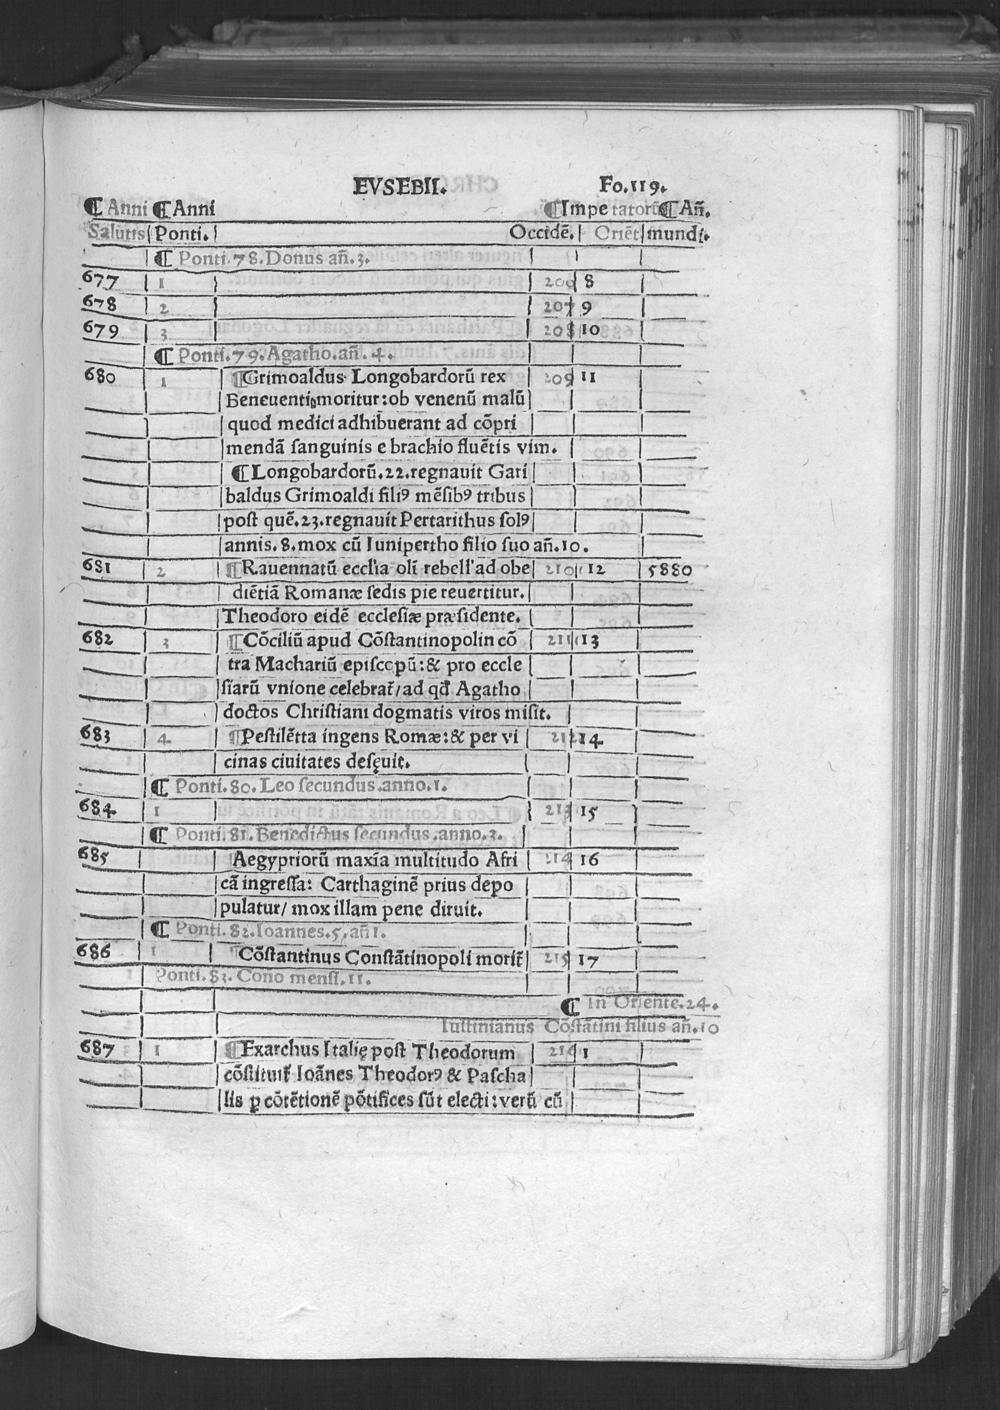 EVSEBII. Fo.119.
¶ Anni ¶ Anni ¶ Imperatorũ ¶ Añ.
Salutis Ponti. Occidẽ. Oriẽt mundi.
¶ Ponti.78.Donus añ.3.
677 1 206 8
678 2 207 9
679 3 208 10
¶ Ponti.79.Agatho.añ.4.
680 1 ¶Grimoaldus Longobardorũ rex 209 11
Beneuentiꝙ moritur:ob venenũ malũ
quod medici adhibuerant ad cõpri
mendã ſanguinis e brachio fluẽtis vim.
¶ Longobardorũ.22.regnauit Gari
baldus Grimoaldi filiꝰ mẽſibꝰ tribus
poſt quẽ.23.regnauit Pertarithus ſolꝰ
annis.8.mox cũ Iunipertho filio ſuo añ.10.
681 2 ¶Rauennatũ eccl'ia oli rebell' ad obe 210 12 5880
diẽtiã Romanæ ſedis pie reuertitur.
Theodoro eidẽ eccleſiæ præſidente.
682 3 ¶Cõciliũ apud Cõſtantinopolin cõ 211 13
tra Machariũ epiſcopũ:& pro eccle
ſiarũ vnione celebrat̃/ad qđ Agatho
doctos Chriſtiani dogmatis viros miſit.
683 4 ¶Peſtilẽtia ingens Romæ:& per vi 212 14
cinas ciuitates deſęuit.
¶ Ponti.80.Leo ſecundus.anno.1.
684 1 213 15
¶ Ponti.81.Benedictus ſecundus.anno.3.
685 Aegypriorũ maxĩa multitudo Afri 214 16
cã ingreſſa: Carthaginẽ prius depo
pulatur/ mox illam pene diruit.
¶ Ponti.82.Ioannes.5.añ1.
686 1 ¶Cõſtantinus Conſtãtinopoli morit̃ 215 17
Ponti.83.Cono menſi.11.
¶ In Oriente.24.
Iuſtinianus Cõſtãtini filius añ.10
687 1 ¶Exarchus Italię poſt Theodorum 216 1
cõſtituit̃ Ioãnes Theodorꝰ & Paſcha
lis ꝑ cõtẽtionẽ põtifices ſũt electi:verũ cũ